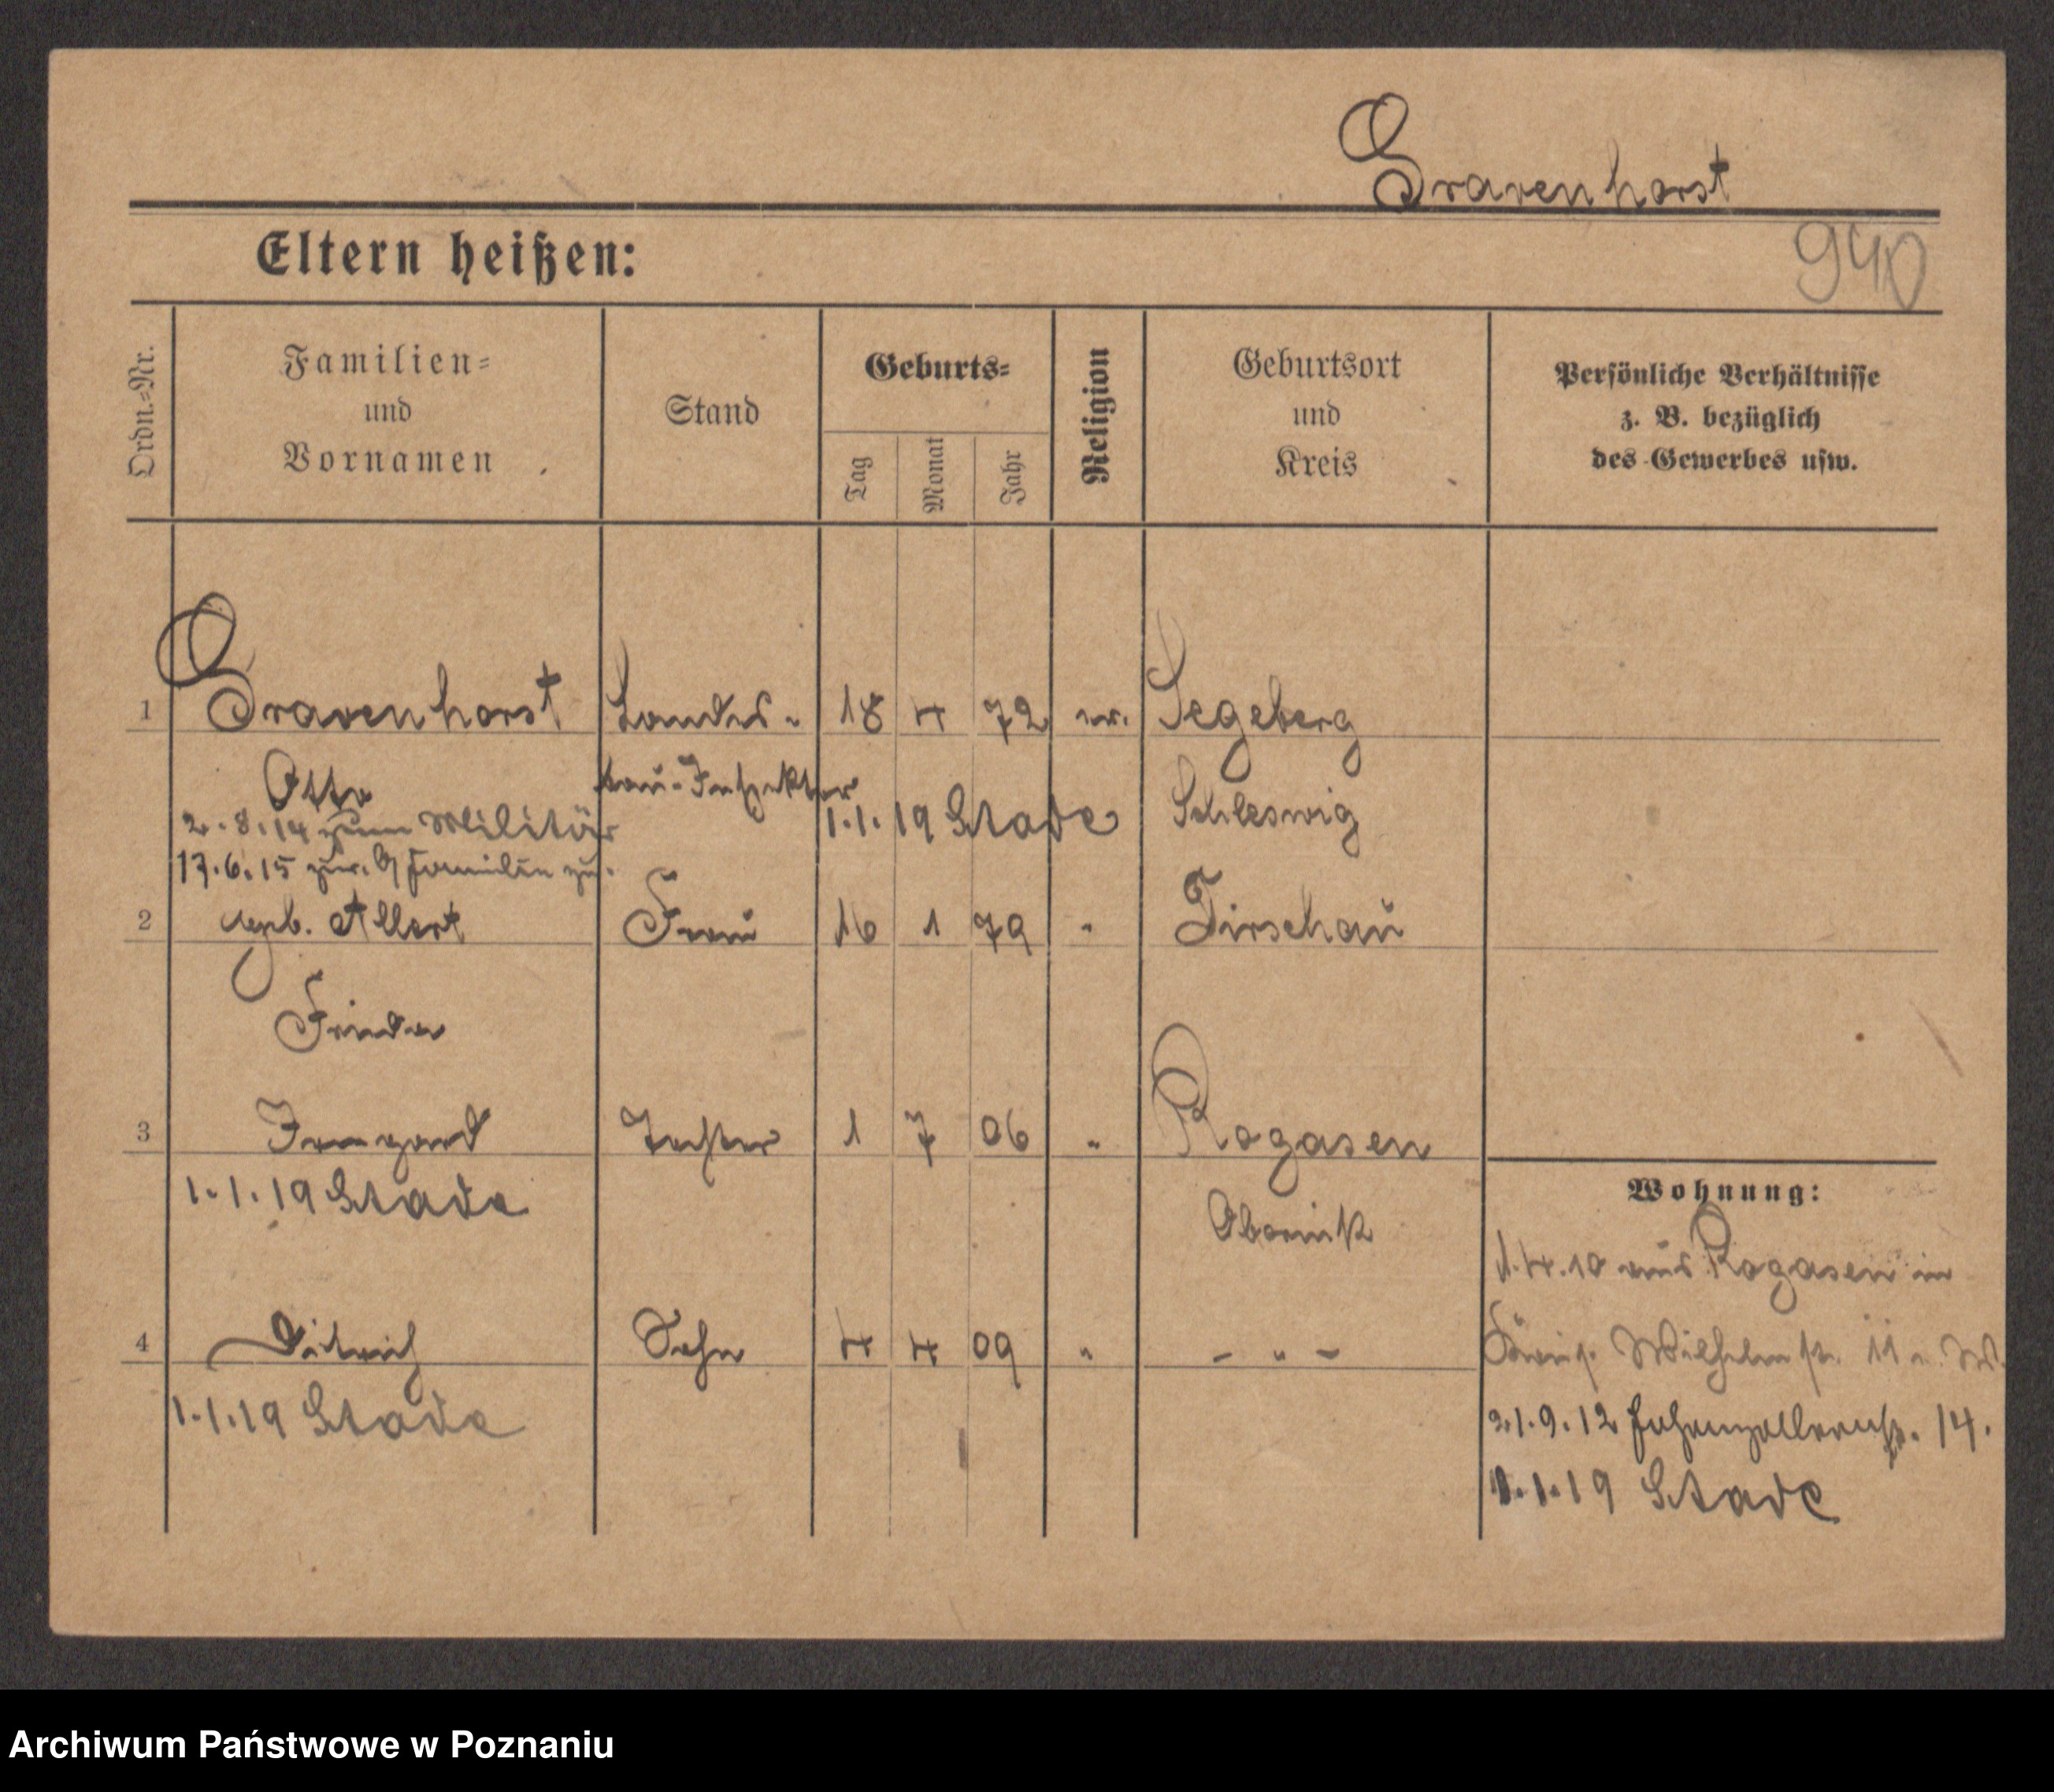 Gravenhorst
Eltern heißen:
940
Ordn.-Nr.
Familien-
und
Vornamen
Stand
Geburts-
Tag
Monat
Jahr
Religion
Geburtsort
und
Kreis
Persönliche Verhältnisse
z. B. bezüglich
des Gewerbes usw.
1 Gravenhorst Landes- 18 4 72 ev. Segeberg
Otto bau-Inspektor
2.8.14 zum Militär 1.1.19 Stade Schleswig
17.6.15 zur. Familie
2 geb. Allert Frau 16 1 79 " Dirschau
Frieda
3 Irmgard Tochter 1 7 06 " Rogasen
1.1.19 Stade Obornik
4 Ditrich Sohn 4 4 09 " - " -
1.1.19 Stade
Wohnung:
1.4.10 aus Rogasen in
Wilhelmstr. 11 W.
21.9.12 Hohenzollernstr. 14.
1.1.19 Stade
Archiwum Państwowe w Poznaniu